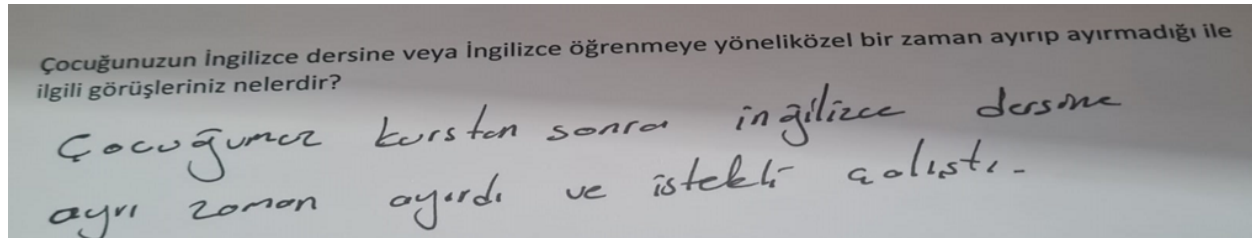 Çocuğunuzun İngilizce dersine veya İngilizce öğrenmeye yöneliközel bir zaman ayırıp ayırmadığı ile
ilgili görüşleriniz nelerdir?
Çocuğumuz kurstan sonra ingilizce dersine
ayrı zaman ayırdı ve istekli çalıştı.